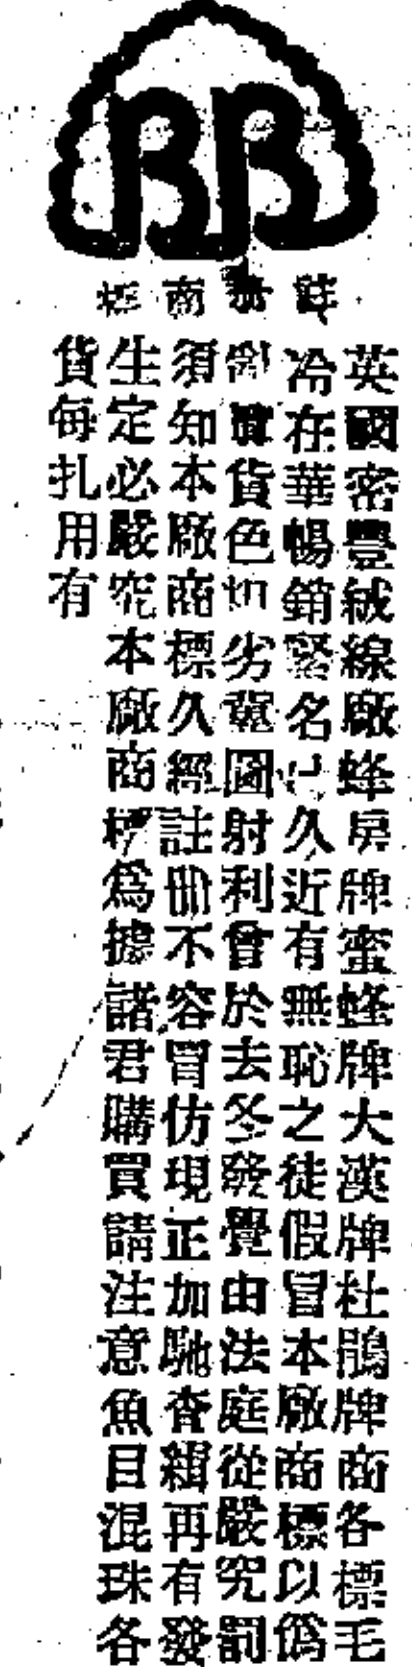 BB
註冊商標
英國密豐絨線廠蜂房牌蜜蜂牌大漢牌杜鵑牌商各標毛
冷在華暢銷緊名已久近有無恥之徒假冒本廠商標以僞
貨色切劣冀圖射利曾於去冬發覺由法庭從嚴究罰
須知本廠商標久經註冊不容冒仿現正加馳查緝再有發
生定必嚴究本廠商標爲據諸君購買請注意魚目混珠各
貨每扎用有